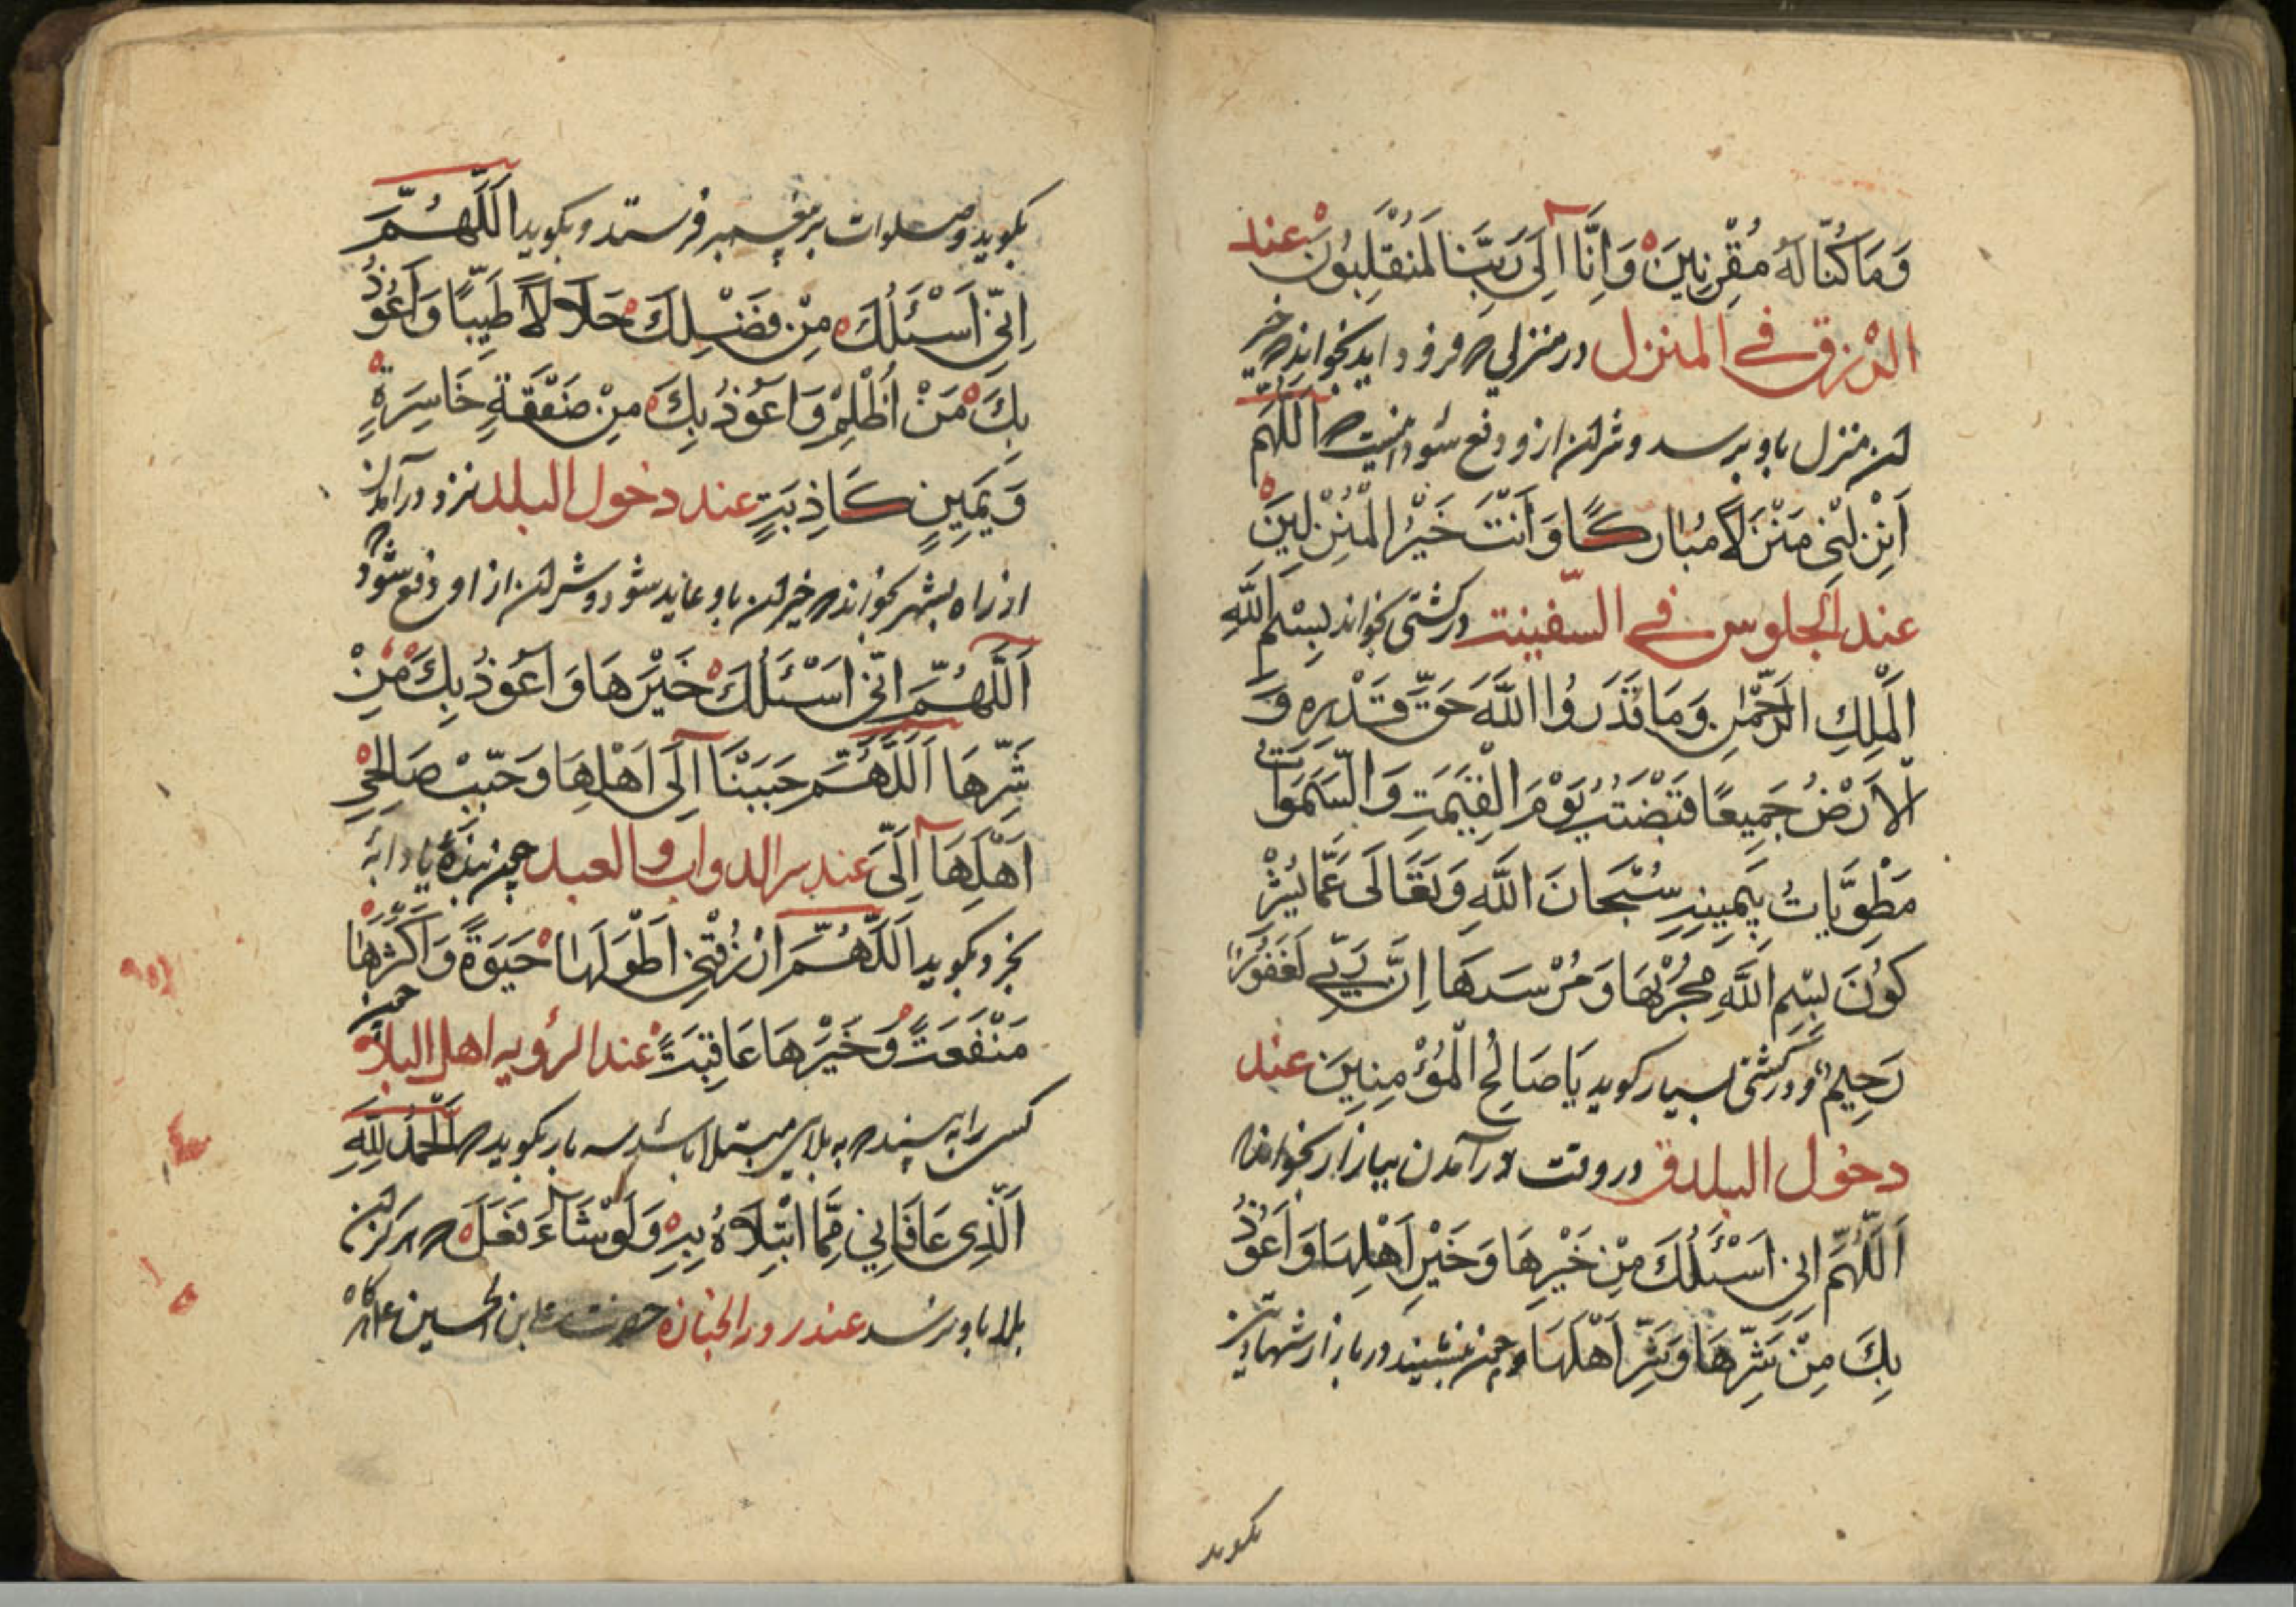 وَمَا كُنَّا لَهُ مُقْرِنِينَ وَاِنَّا اِلَى رَبِّنَا لَمُنْقَلِبُونَ عند
النزق في المنزل در منزلي که فرود اید بخواند که خیر
ان منزل باو برسد و شر ان ازو دفع شود اینست که اَللَّهُمَّ
اَنْزِلْنِي مَنْزَلًا مُبارَكًا وَاَنْتَ خَيْرُ الْمُنْزِلِينَ
عند الجلوس في السّفينت در کشتی بخواند بِسْمِ اللَّهِ
الْمَلِكِ الرَّحْمٰنِ وَمَا قَدَرُوا اللَّهَ حَقَّ قَدْرِهِ وَ
الْاَرْضُ جَمِيعًا قَبْضَتُهُ يَوْمَ الْقِيٰمَتِ وَالسَّمٰوَاتُ
مَطْوِيَّاتُ بِيَمِينِهِ سُبْحَانَ اللَّهِ وَتَعَالَى عَمَّا يُشْرِ
كوُنَ بِسْمِ اللَّهِ مَجْرٰيهَا وَمُرْسٰهَا اِنَّ رَبِّي لَغَفُورٌ
رَحِيمٌ و در کشتی بسیار کوید يَا صَالِحُ الْمُؤْمِنِينَ عند
دخول البلد در وقت در آمدن ببازار بخواند
اَللَّهُمَّ اِنِّي اَسْئَلُكَ مِنْ خَيْرِهَا وَخَيْرِ اَهْلِهَا وَاَعُوذُ
بِكَ مِنْ شَرِّهَا وَشَرِّ اَهْلِهَا و چون بنشیند در بازار شهادتین
بکوید
بکوید و صلوات بر پیغمبر فرستد و بکوید اَللَّهُمَّ
اِنِّي اَسْئَلُكَ مِنْ فَضْلِكَ حَلَالًا طَيِّبًا وَاَعُوذُ
بِكَ مَنْ اَظْلِمْ وَاَعُوذُ بِكَ مِنْ صَفْقَةٍ خَاسِرَةٍ
وَيَمِينٍ كَاذِبَتٍ عند دخول البلد نزد در آمدن
از راه بشهر بخواند که خیر ان باو عاید شود و شر ان از او دفع شود
اَللَّهُمَّ اِنِّي اَسْئَلُكَ خَيْرَهَا وَاَعُوذُ بِكَ مِنْ
شَرِّهَا اَللَّهُمَّ حَبِّبْنَا اِلَى اَهْلِهَا وَحَبِّبْ صَالِحِي
اَهْلِهَا اِلَيَّ عند الدواب والعبد چون بندهٔ یا دابهٔ
بخرد بکوید اَللَّهُمَّ ارْزُقْنِي اَطْوَلَهَا حَيٰوةً وَاَكْثَرَهَا
مَنْفَعَتً وَخَيْرَهَا عَاقِبَتً عند الرؤيه اهل البلا چون
کسی را به بیند که به بلایی مبتلا باشد سه بار بکوید که اَلْحَمْدُ لِلَّهِ
الَّذِي عَافَانِي مِمَّا ابْتَلَاهُ بِهِ وَلَوْ شَاءَ فَعَلَ که هرکز ان
بلا باو نرسد عند الجنازه حضرت علی ابن الحسین